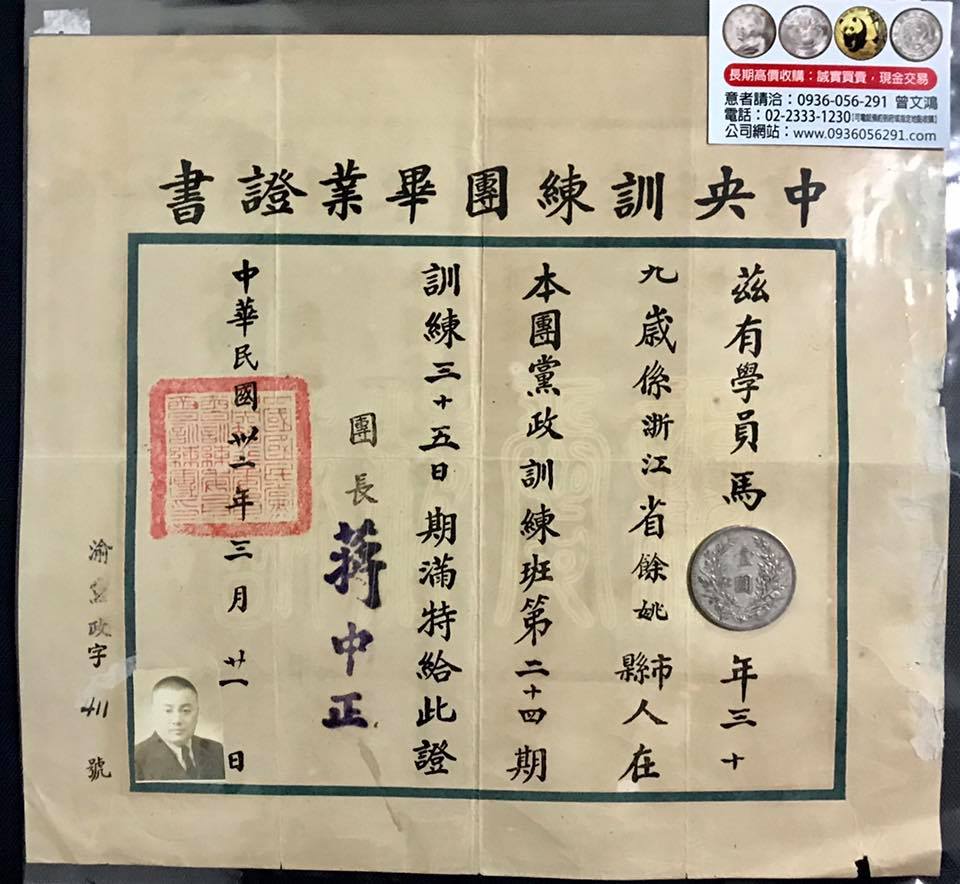 長期高價收購：誠實買賣，現金交易
意者請洽：0936-056-291 曾文鴻
電話：02-2333-1230
公司網站：www.0936056291.com
中央訓練團畢業證書
茲有學員馬 壹圓 年三十
九歲係浙江省餘姚市縣人在
本團黨政訓練班第二十四期
訓練三十五日期滿特給此證
團長 蔣中正
中華民國卅二年三月廿一日
渝黨政字 411 號